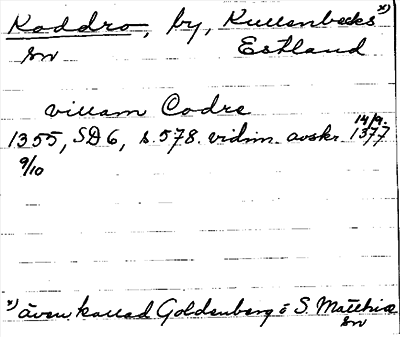 Koddro, by, Kullenbecks x)
sn Estland
villam Codre
1355, SD 6, s. 578. vidim. avskr. 14/9. 1377
9/10
x) även kallad Goldenberg o S. Matthiæ
sn